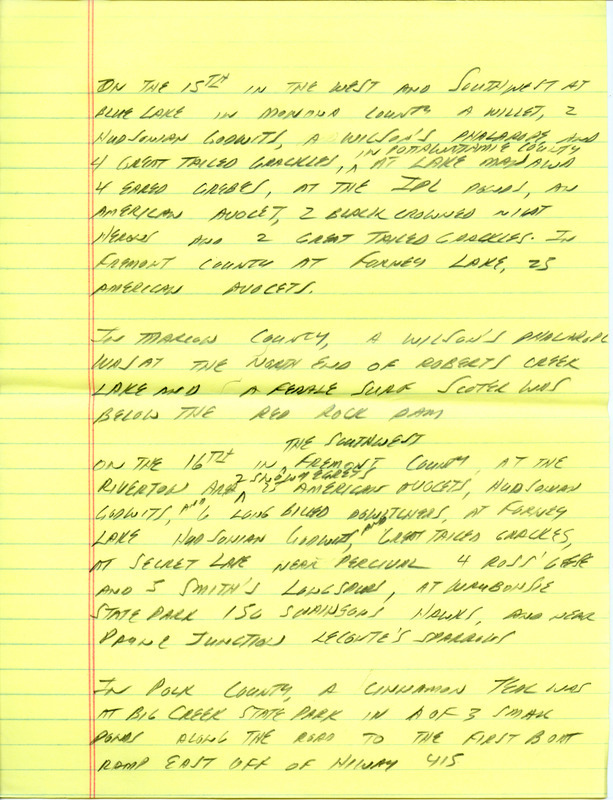 ON THE 15TH IN THE WEST AND SOUTHWEST AT
BLUE LAKE IN MONONA COUNTY A WILLET, 2
HUDSONIAN GODWITS, A WILSON'S PHALAROPE AND
IN POTAWATTAMIE COUNTY
4 GREAT TAILED GRACKLES, ^ AT LAKE MANAWA
4 EARED GREBES, AT THE IPL PONDS, AN
AMERICAN AVOCET, 2 BLACK CROWNED NIGHT
HERONS AND 2 GREAT TAILED GRACKLES. IN
FREMONT COUNTY AT FORNEY LAKE, 23
AMERICAN AVOCETS.
IN MARION COUNTY, A WILSON'S PHALAROPE
WAS AT THE NORTH END OF ROBERTS CREEK
LAKE AND A FEMALE SURF SCOTER WAS
BELOW THE RED ROCK DAM
THE SOUTHWEST
ON THE 16TH IN ^ FREMONT COUNTY, AT THE
2 SNOWY EGRETS,
RIVERTON AREA ^ AMERICAN AVOCETS, HUDSONIAN
GODWITS, AND 6 LONG BILLED DOWITCHERS, AT FORNEY
LAKE HUDSONIAN GODWITS AND GREAT TAILED GRACKLES,
AT SECRET LAKE NEAR PERCIVAL 4 ROSS' GEESE
AND 5 SMITH'S LONGSPURS, AT WAUBONSIE
STATE PARK 156 SWAINSONS HAWKS, AND NEAR
PAYNE JUNCTION LECONTE'S SPARROWS
IN POLK COUNTY, A CINNAMON TEAL WAS
AT BIG CREEK STATE PARK IN A OF 3 SMALL
PONDS ALONG THE ROAD TO THE FIRST BOAT
RAMP EAST OFF OF HIWAY 415